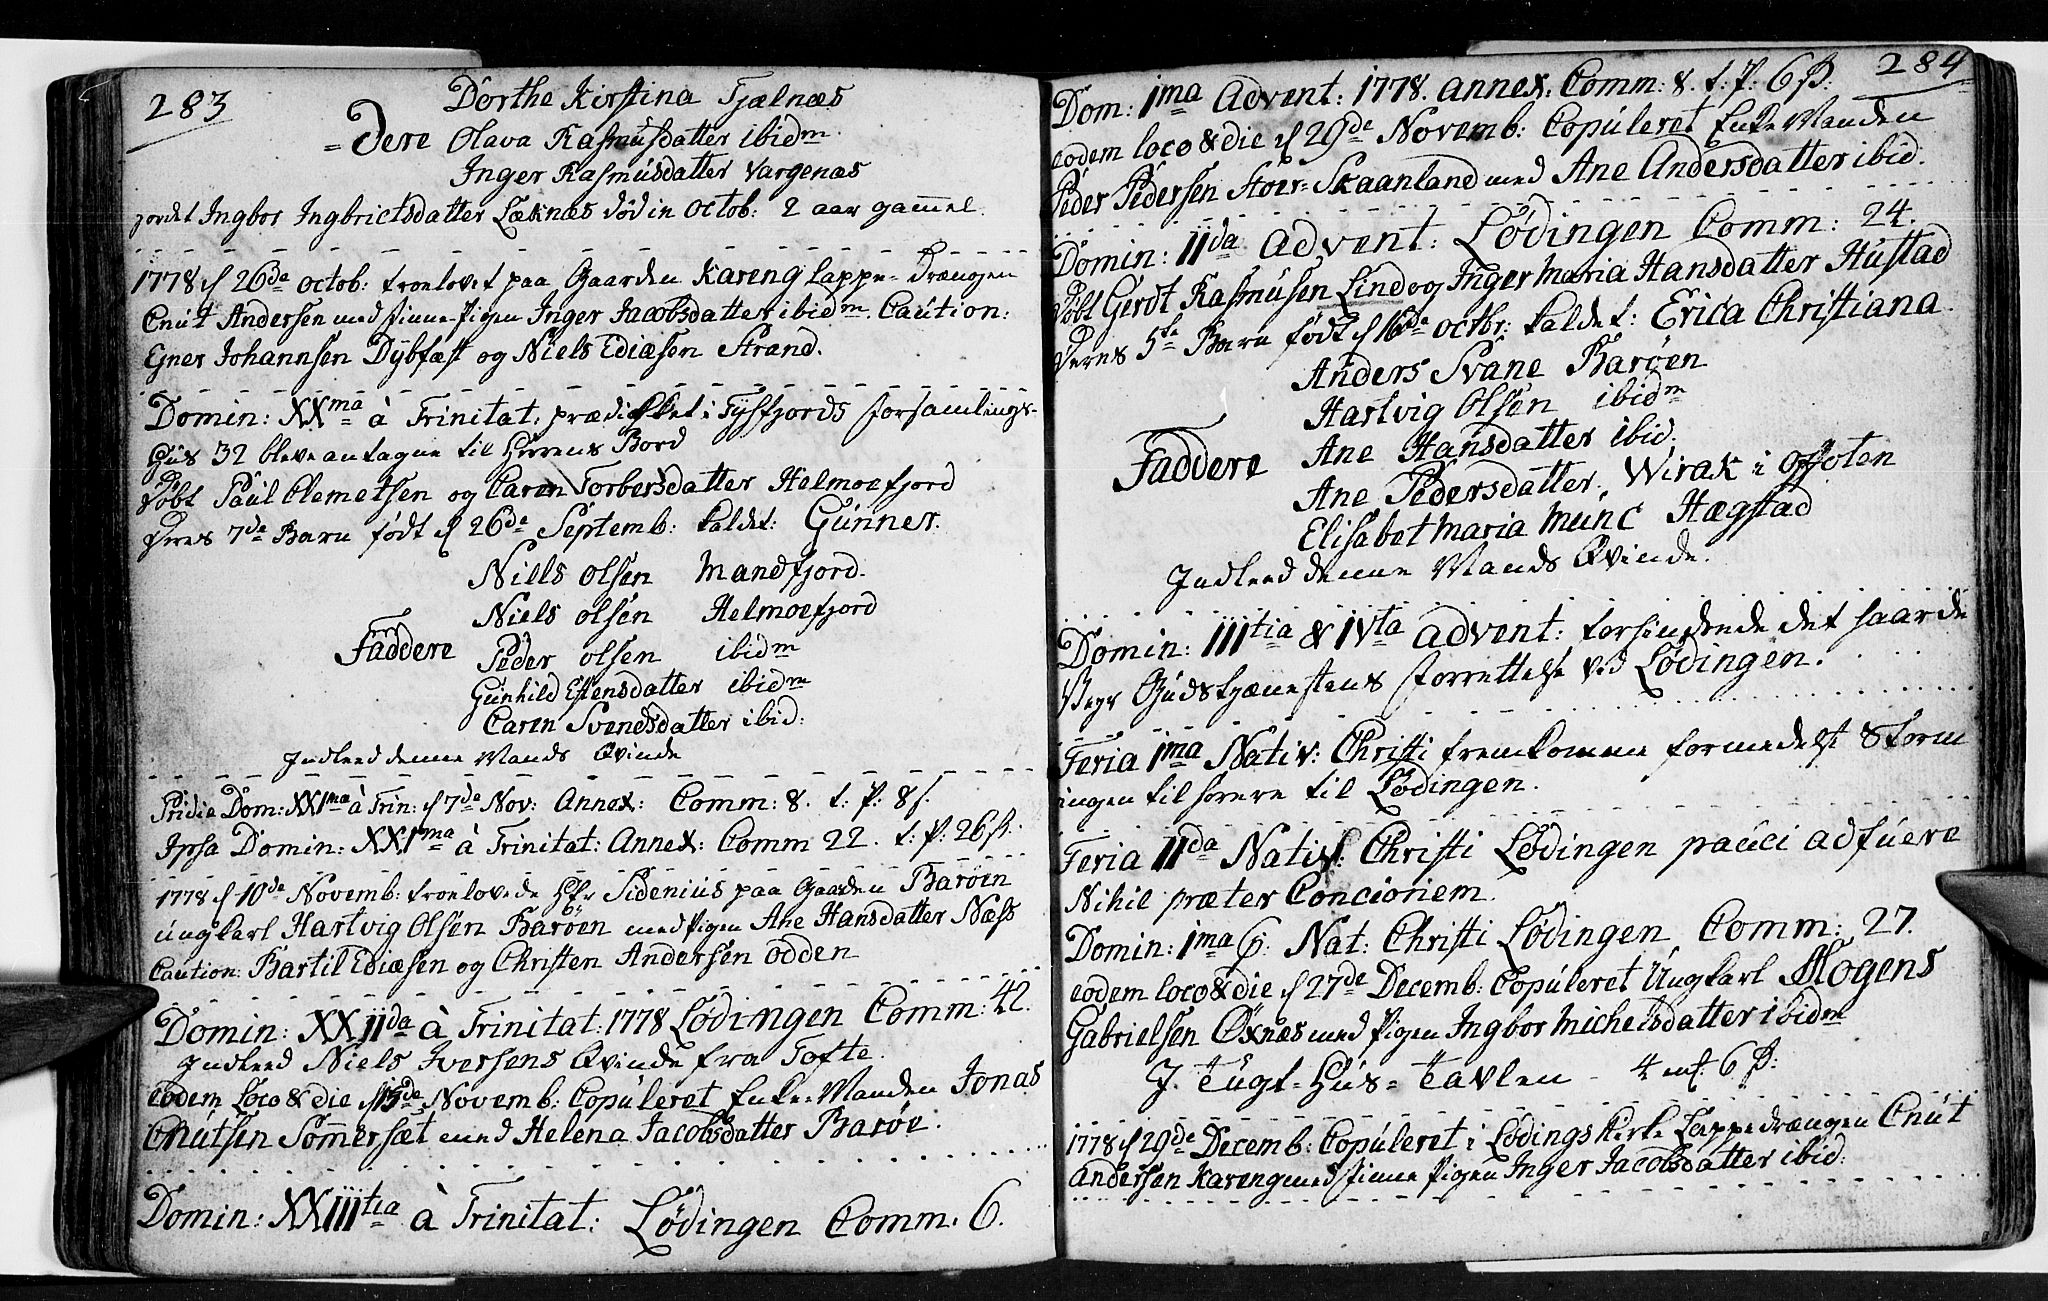 283
Dorthe Kirstina Fjælnæs
= dere Olava Rasmusdatter ibidm.
Inger Rasmusdatter Vargenæs
jordet Ingbor Ingbrictsdatter Læknæs død in Octob: 2 aar gammel.
1778 d 26de Octob: troelovet paa Gaarden Kareng Lappe-Drængen
Cnut Andersen med Finne-Pigen Inger Jacobsdatter ibidm. Caution:
Egner Johannsen Dybfæst og Niels Ediæsen Strand.
Domin: XXma à Trinitat: prædikket i Tysfjords Forsamlings-
Huus 32 bleve antagne til Herrens Bord
Døbt Paul Clemetsen og Caren Torbersdatter Helmoefjord
Deres 7de Barn født d 26de Septemb: kaldet: Gunner.
Niels Olsen Mandfjord.
Niels Olsen Helmoefjord
Faddere Peder Olsen ibidm
Gunhild Estensdatter ibidm
Caren Svendsdatter ibid:
Indleed denne Mands Qvinde
Pridie Dom: XXIma à Trin: d 7de Nov: Annex: Comm: 8. t: P: 8 s.
Ipsa Domin: XXIma à Trinitat: Annex: Comm 22. t: P: 26 ß.
1778 d 10de Novemb: troelovede Hr Sidenius paa Gaarden Barøen
Ungkarl Hartvig Olsen Barøen med Pigen Ane Hansdatter Næss
Caution: Bartil Ediæsen og Christen Andersen Odden
Domin: XXIIda à Trinitat: 1778 Lødingen Comm: 42.
Indleed Niels Iversens Qvinde fra Tofte.
eodem Loco & die d 15de Novemb: Copuleret Enke-Manden Jonas
Cnutsen Sommersæt med Helena Jacobsdatter Barøe.
Domin: XXIIItia à Trinitat: Lødingen Comm. 6.
284
Dom: 1ma Advent: 1778. Annex. Comm: 8. t: P: 6 ß.
eodem loco & die d 29de Novemb: Copuleret Enke Manden
Peder Pedersen Stoer-Skaanland med Ane Andersdatter ibid.
Domin: IIda Advent: Lødingen Comm: 24.
Døbt Gerdt Rasmusen Lind og Inger Maria Hansdatter Hustad
Deres 5te Barn født d 16de Octbr: kaldet: Erica Christiana
Anders Svane Barøen
Hartvig Olsen ibidm
Faddere Ane Hansdatter ibid.
Ane Pedersdatter. Wirak i Offoten
Elisabet Maria Munc Hægstad
Indleed denne Mands Qvinde.
Domin: IIItia & IVta Advent: forhindrede det haarde
Veyr Gudstjænestens Forrettelse ved Lødingen.
Feria 1ma Nativ: Christi fremkomme formedelst Storm
ingen tilhørere til Lødingen.
Feria IIda Nativ: Christi Lødingen pauci adfuere
Nihil præter Concionem.
Domin: 1ma p: Nat: Christi Lødingen Comm: 27.
eodem loco & die d 27de Decemb: Copuleret Ungkarl Mogens
Gabrielsen Øxnæs med Pigen Ingbor Michelsdatter ibidm
I. Tugt-Huus-Tavlen - 4 mk: 6 ß:
1778 d 29de Decemb: Copuleret i Lødings Kirke Lappedrængen Cnut
Andersen Kareng med Finne Pigen Inger Jacobsdatter ibid: